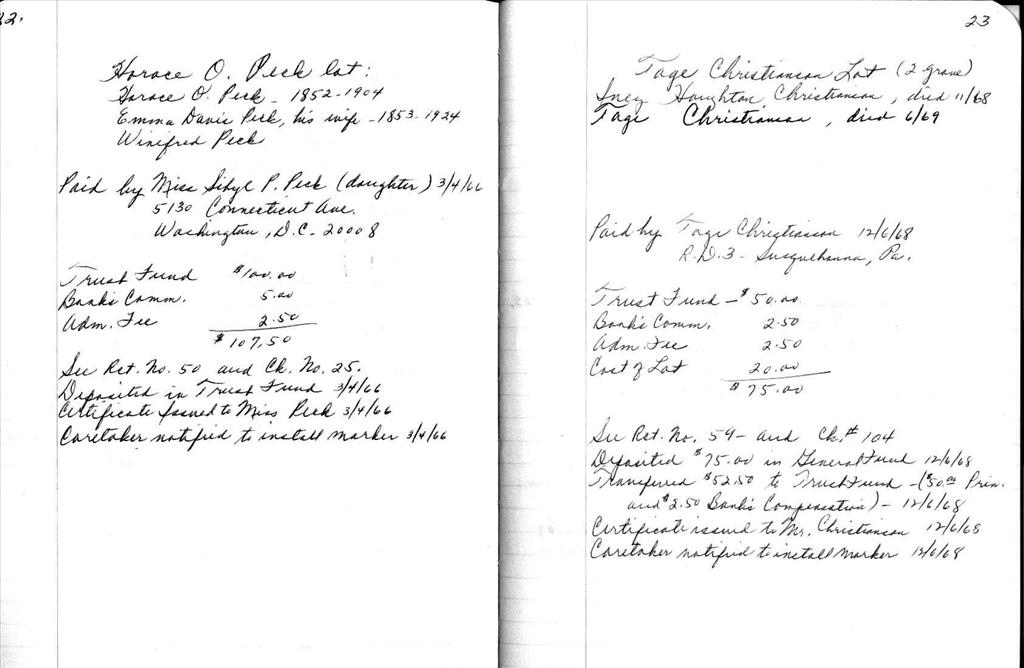 22.
Horace O. Peck lot:
Horace O. Peck - 1852-1904
Emma Davis Peck, his wife - 1853-1924
Winifred Peck
Paid by Miss Sibyl P. Peck (daughter) 3/4/66
5130 Connecticut Ave.
Washington, D.C. - 20008
Trust Fund $100.00
Bank's Comm. 5.00
Adm. Fee 2.50
$107.50
See Rct. No. 50 and Ck. No. 25.
Deposited in Trust Fund 3/4/66
Certificate Issued to Miss Peck 3/4/66
Caretaker notified to install marker 3/4/66
23
Tage Christianson Lot (2 grave)
Inez Houghton Christianson, died 11/68
Tage Christianson, died 6/69
Paid by Tage Christianson 12/6/68
R.D. 3 - Susquehanna, Pa.
Trust Fund - $50.00
Bank's Comm. 2.50
Adm. Fee 2.50
Cost of Lot 20.00
$75.00
See Rct. No. 59 - and Ck.# 104
Deposited $75.00 in General Fund 12/6/68
Transferred $52.50 to Trust Fund - ($50.00 Prin.
and $2.50 Bank's Compensation) - 12/6/68
Certificate issued to Mr. Christianson 12/6/68
Caretaker notified to install marker 12/6/68